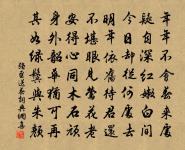 年年不會春來處
疑自深紅嫩白間
今日却從何處去
明年依舊待君還
不堪眼見鶯花老
安得心同木石頑
身外韶華猶可再
其如綠鬢與朱顏
強至送春